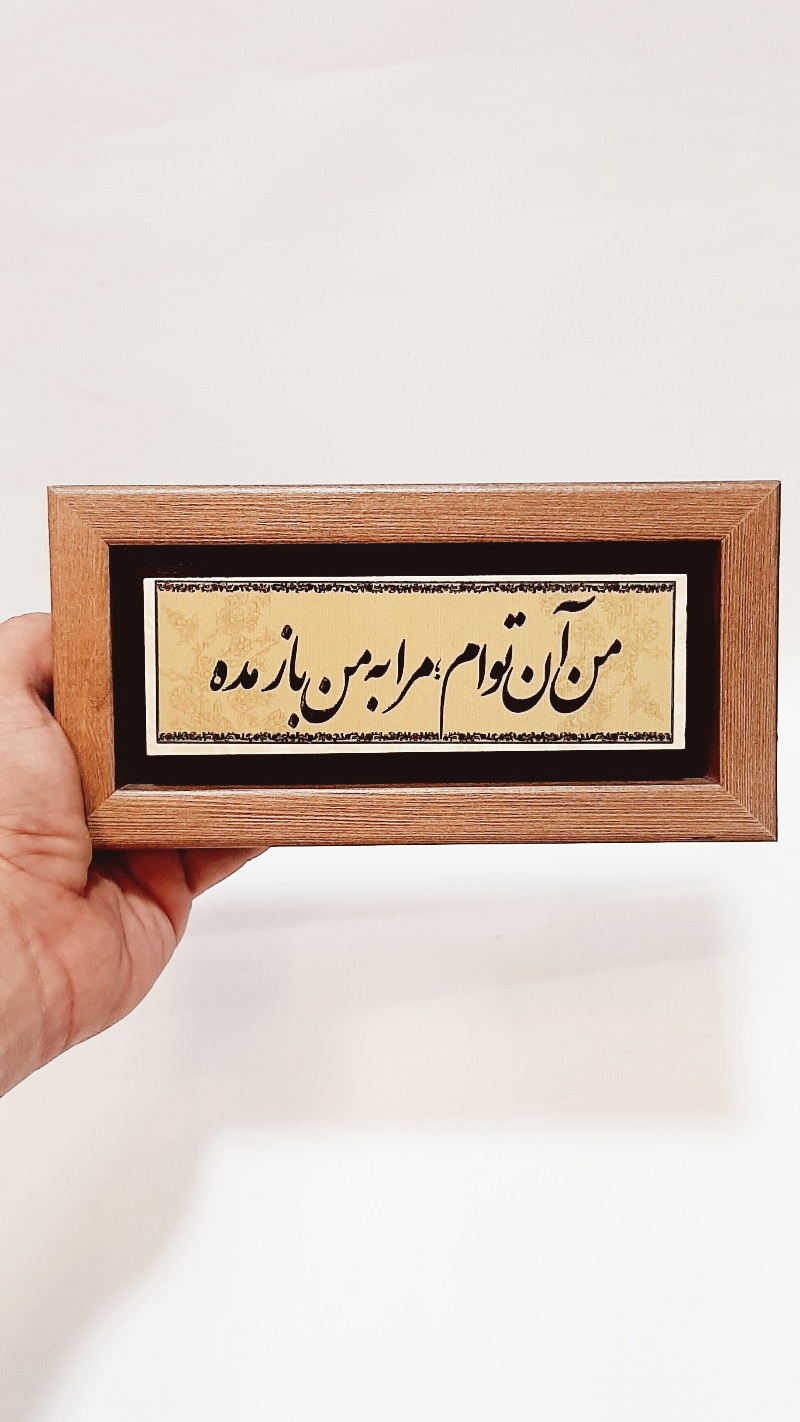 من آن توام ؛ مرا به من باز مده